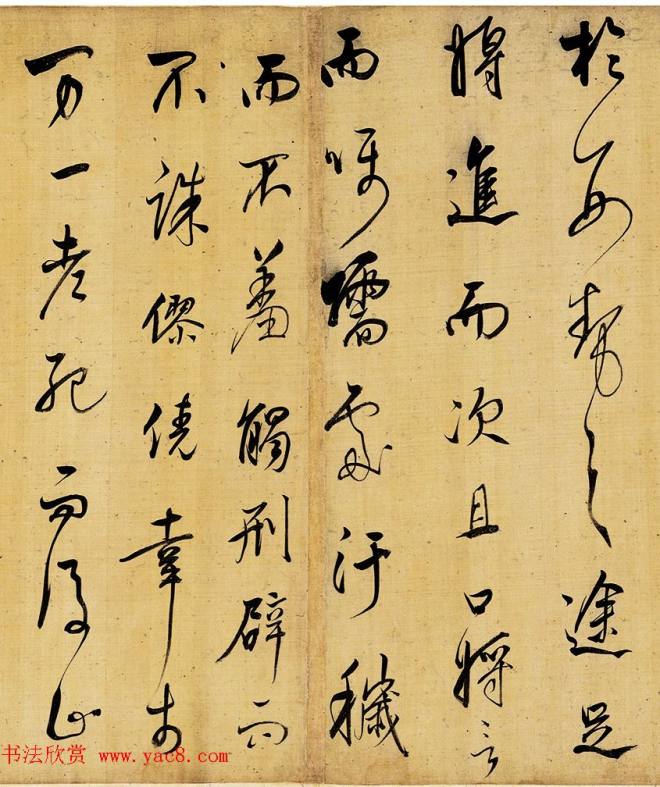 於形勢之途足
將進而次且口將言
而囁嚅處汙穢
而不羞觸刑辟而
不誅僇僥幸於
万一老死而後止
书法欣赏 www.yac8.com